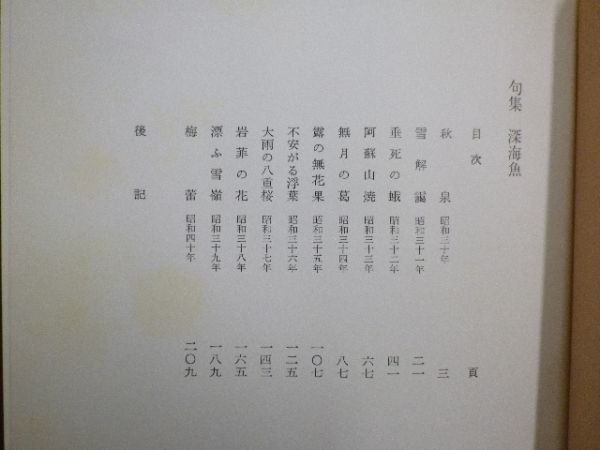 句集　深海魚
目次　頁
秋泉　昭和三十年　三
雪解靄　昭和三十一年　二一
垂死の蛾　昭和三十二年　四一
阿蘇山焼　昭和三十三年　六七
無月の葛　昭和三十四年　八七
露の無花果　昭和三十五年　一〇七
不安がる浮葉　昭和三十六年　一二五
大雨の八重桜　昭和三十七年　一四三
岩菲の花　昭和三十八年　一六五
漂ふ雪嶺　昭和三十九年　一八九
梅蕾　昭和四十年　二〇九
後記